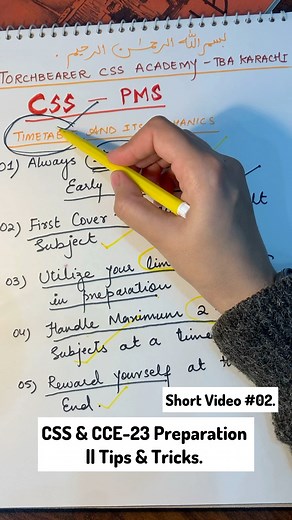 بسم الله الرحمن الرحيم.
TORCHBEARER CSS ACADEMY - TBA KARACHI
CSS - PMS
TIMETAB AND ITS MECHANICS
01) Always
Early
02) First Cover
Subject
03) Utilize your lim
in preparation
04) Handle Maximum 2
Subjects at a time
05) Reward yourself at
End.
Short Video #02.
CSS & CCE-23 Preparation
|| Tips & Tricks.